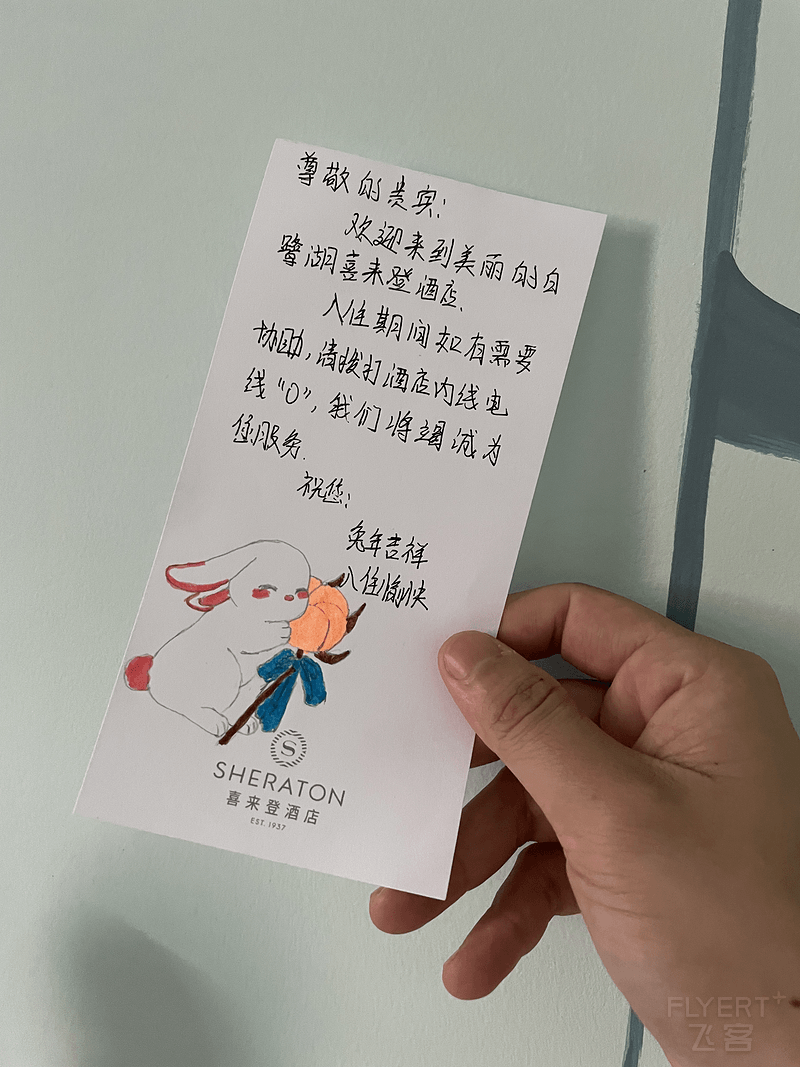 尊敬的贵宾:
欢迎来到美丽的白
鹭湖喜来登酒店.
入住期间如有需要
协助,请拨打酒店内线电
线“0”,我们将竭诚为
您服务.
祝您:
兔年吉祥
入住愉快
S
SHERATON
喜来登酒店
EST. 1937
FLYERT+
飞客